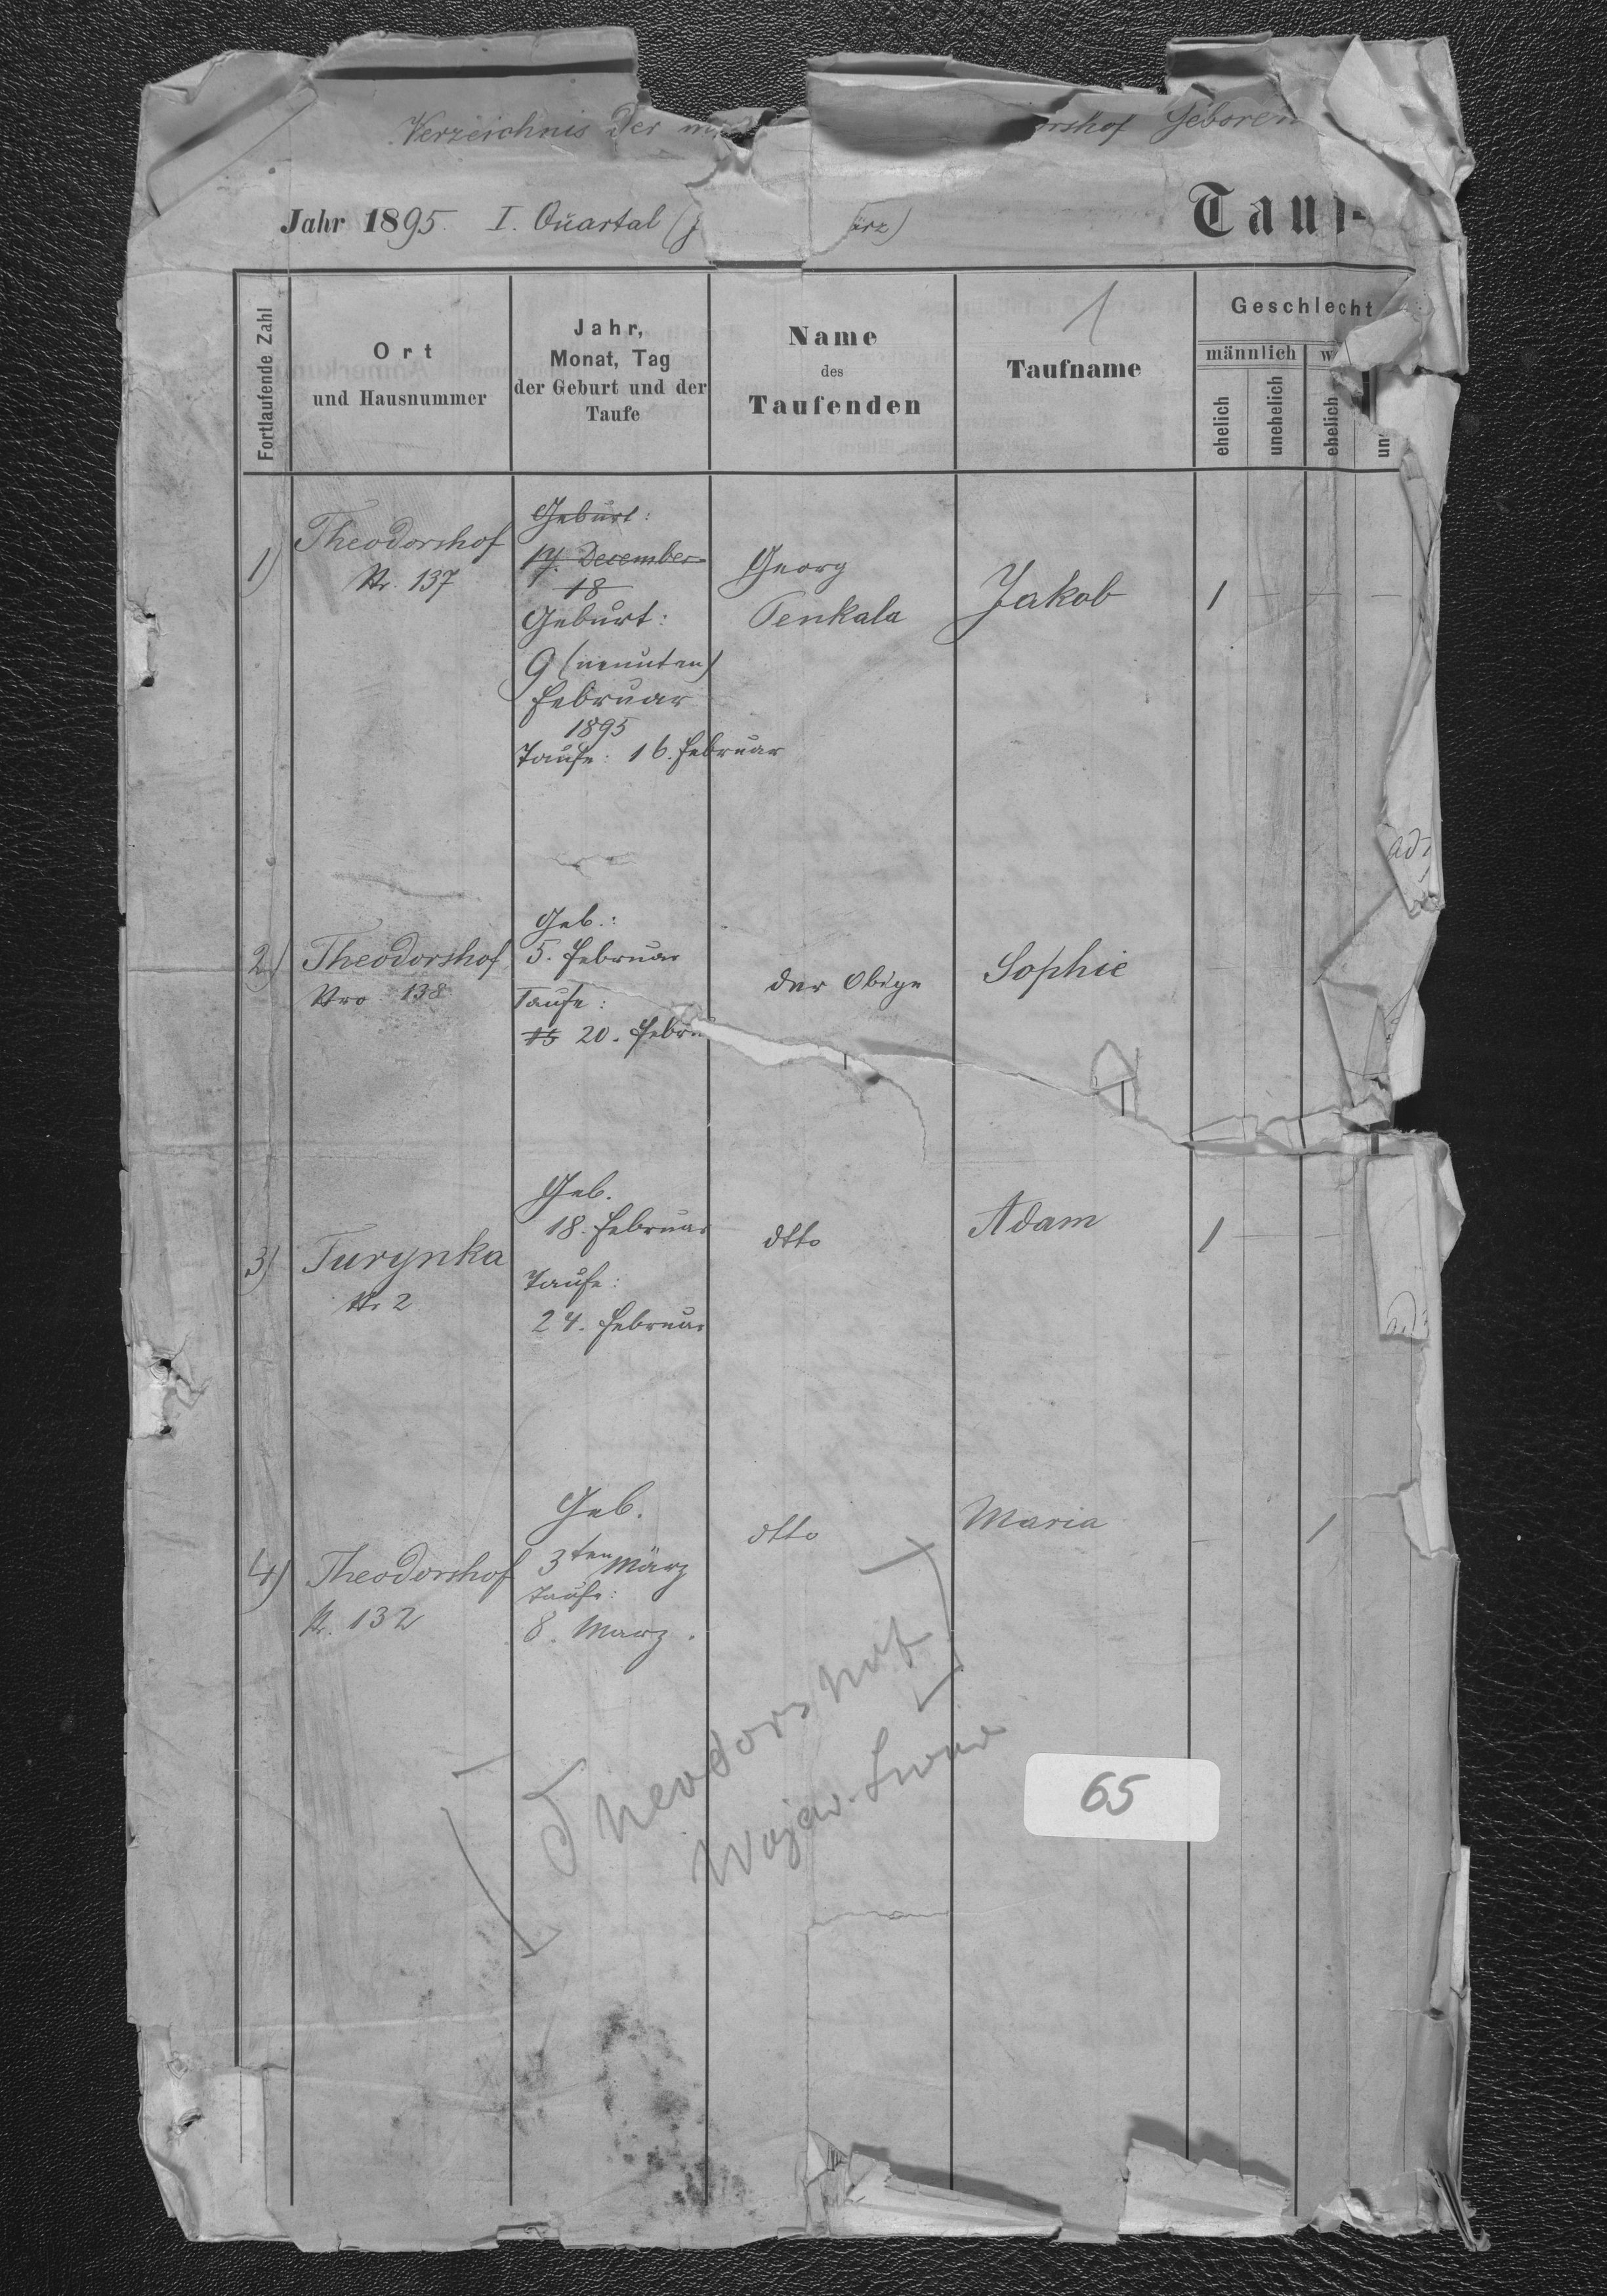 Verzeichnis der
rshof Geboren
Jahr 1895. I. Quartal (J ärz)
Tauf-
Fortlaufende Zahl
Ort
und Hausnummer
Jahr,
Monat, Tag
der Geburt und der
Taufe
Name
des
Taufenden
1
Taufname
Geschlecht
männlich w
ehelich
unehelich
ehelich
un
1) Theodorshof
Nr. 137
Geburt:
17. December
18
Geburt:
9 (neunten)
Februar
1895
Taufe: 16. Februar
Georg
Penkala
Jakob
1 — — —
2) Theodorshof
Nro 138
Geb.:
5. Februar
Taufe:
15 20. Febru
der Obige
Sophie
3) Turynka
Nr 2
Geb.
18. Februar
Taufe:
24. Februar
dtto
Adam
1 — —
4) Theodorshof
Nr. 132
Geb.
3ten März
Taufe:
8. März.
dtto
Maria
— 1
[Theodorshof]
Wojew. Lwów
65